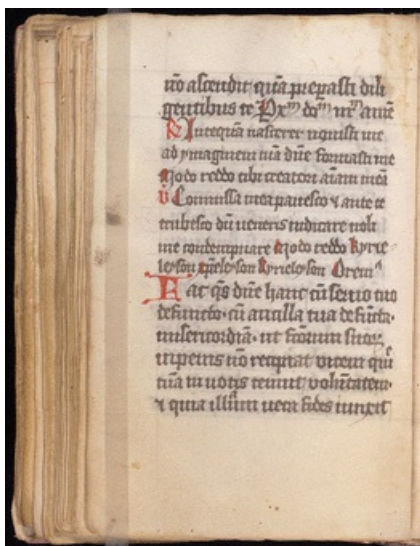 nō ascendit quā preparasti dili
gentibus te Pxᵐ doᵐ nrᵐ amē
R Antequā nascerer novisti me
ad ymaginem tuā dn̄e formasti me
Modo reddo tibi creatori aīam meā
v Commissa mea pavesco ⁊ ante te
erubesco dū veneris iudicare noli
me condempnare Modo reddo kyrie
leyson xp̄eleyson kyrieleyson Oremꝰ
Fac qs dn̄e hanc cū servo tuo
defuncto cū ancilla tua defuncta
misericordiā ut fc̄orum suoꝝ
in penis nō recipiat vicem qui
tuā in votis tenuit volūtatem
⁊ quia illum vera fides iunxit